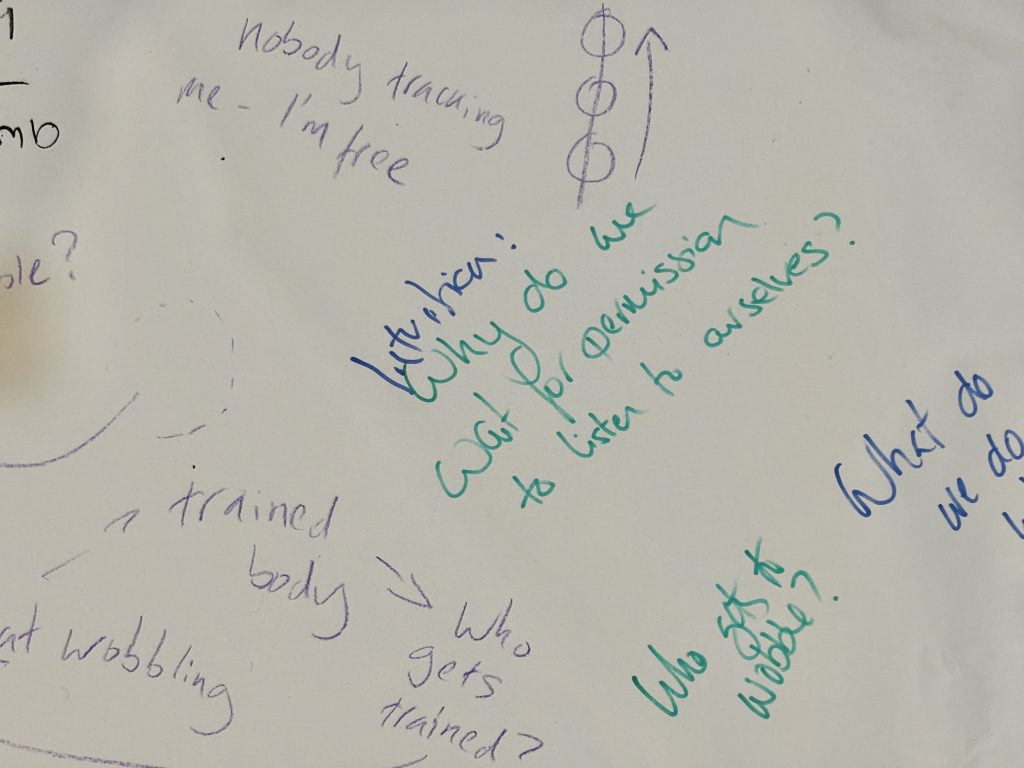 nobody tracking
me - I'm free
Intuition:
Why do we
wait for permission
to listen to ourselves?
What do
we do
trained
body
Who
gets
trained?
wobbling
Who gets to
wobble?